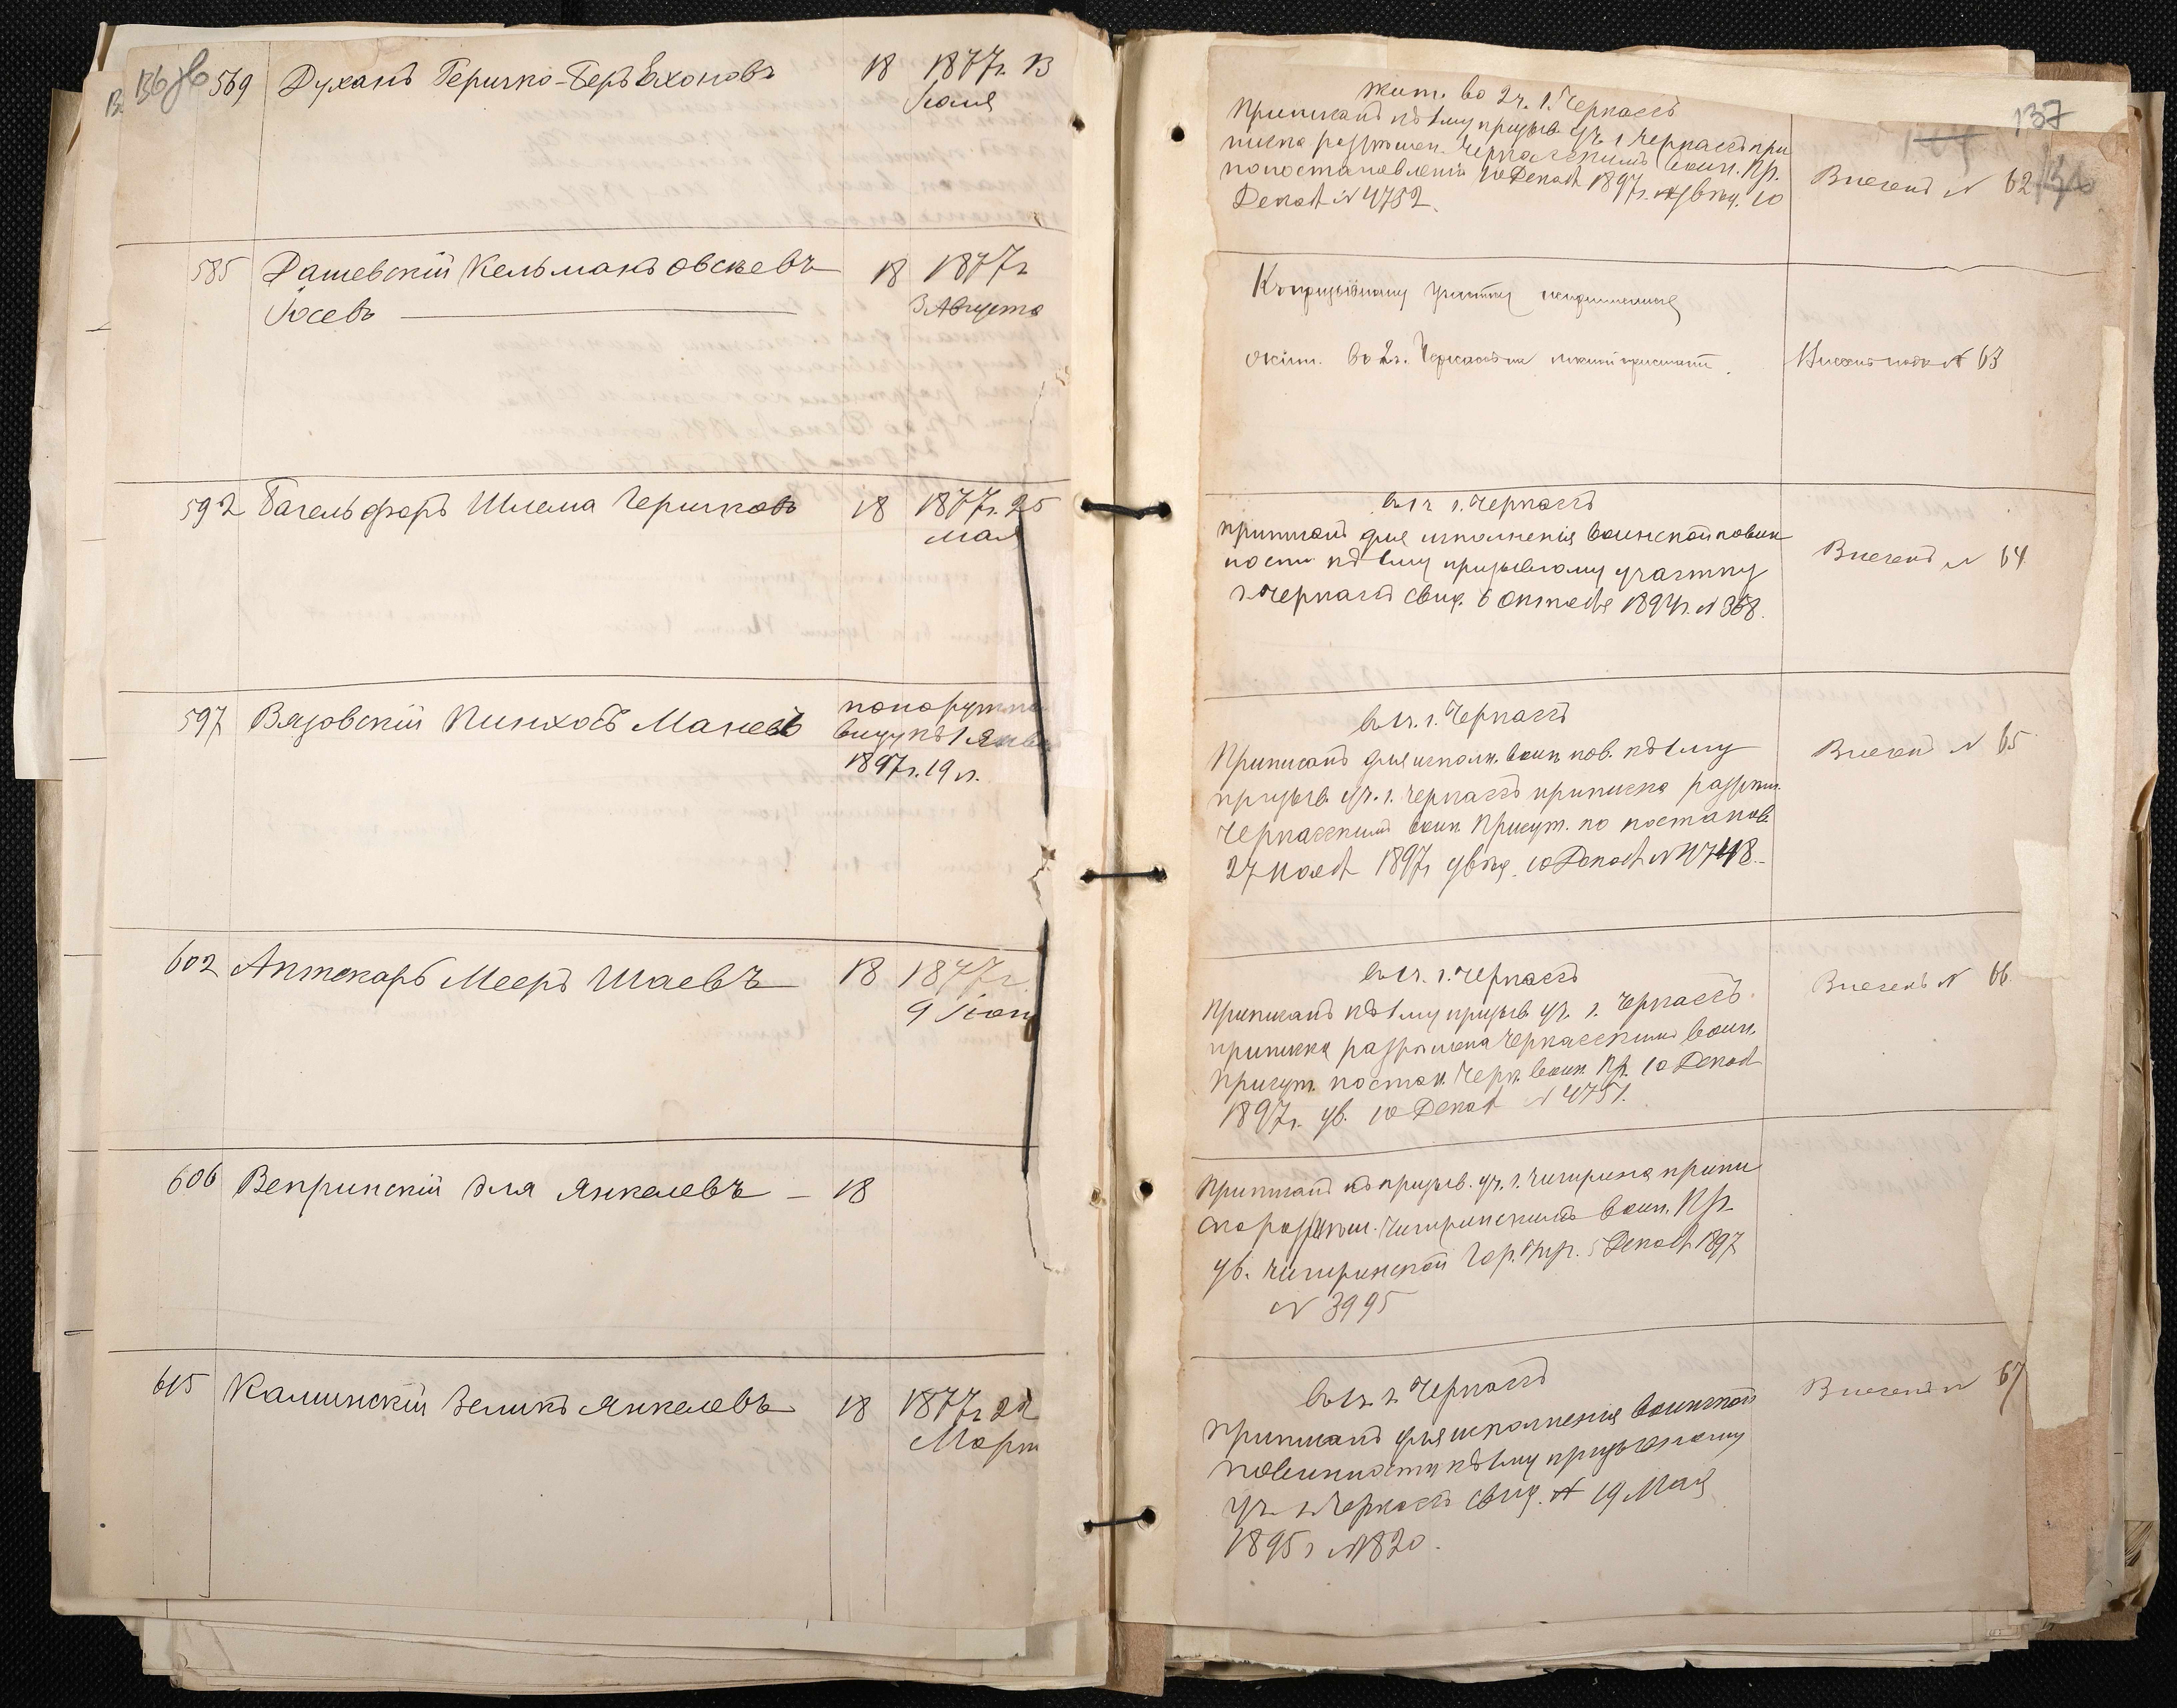 136 об
569 Духанъ Гершко-Беръ Эхоновъ 18 1877г. 13
Іюля
585 Дашевскій Кельманъ Овсѣевъ 18 1877г
Іосевъ 3 Августа
592 Багельферъ Шлема Гершковъ 18 1877г. 25
мая
597 Вязовскій Пинхосъ Маневъ по наружно
виду къ 1 Янва
1897г. 19 л.
602 Аптекарь Мееръ Шаевъ 18 1877г.
9 Іюн
606 Вепринскій Эля Янкелевъ 18
615 Калинскій Зеликъ Янкелевъ 18 1877г 22
Март
137
жит. во 2ч. г. Черкассъ
Приписанъ къ 1му призыв. уч. г. Черкассъ при
писка разрѣшен. Черкасскимъ воин. Пр.
по постановленію 10 Декаб 1897г. увѣд. 10
Декаб № 4752. Внесенъ № 62
Къ призывному участку
жит. во 2ч. Черкассъ № 63
в 1ч г. Черкассъ
приписанъ для исполненія воинской повин
ности къ 1му призывному участку
г. Черкассъ свид. 6 Октября 1894г. № 368. Внесенъ № 64
в 1ч. г. Черкассъ
Приписанъ для исполн. воин. пов. къ 1му
призыв. уч. г. Черкассъ приписка разрѣш.
Черкасскимъ воин. Присут. по постанов.
27 Нояб 1897г увѣд. 10 Декаб № 4748. Внесенъ № 65
в 1ч. г. Черкассъ
Приписанъ къ 1му призыв уч. г. Черкассъ
приписка разрѣшена Черкасскимъ воин.
Присут. постан. Черк. воин. Пр. 10 Декаб
1897г. ув. 10 Декаб № 4751. Внесенъ № 66
Приписанъ къ призыв. уч. г. Чигирина припи
ска разрѣш. Чигиринскимъ воин. Пр.
ув. Чигиринской Гор. Упр. 5 Декаб 1897
№ 3995
в 1ч. г. Черкассъ
приписанъ для исполненія воинской
повинности къ 1му призывному
уч. г. Черкассъ свид. 19 Мая
1895г № 820. Внесенъ № 67